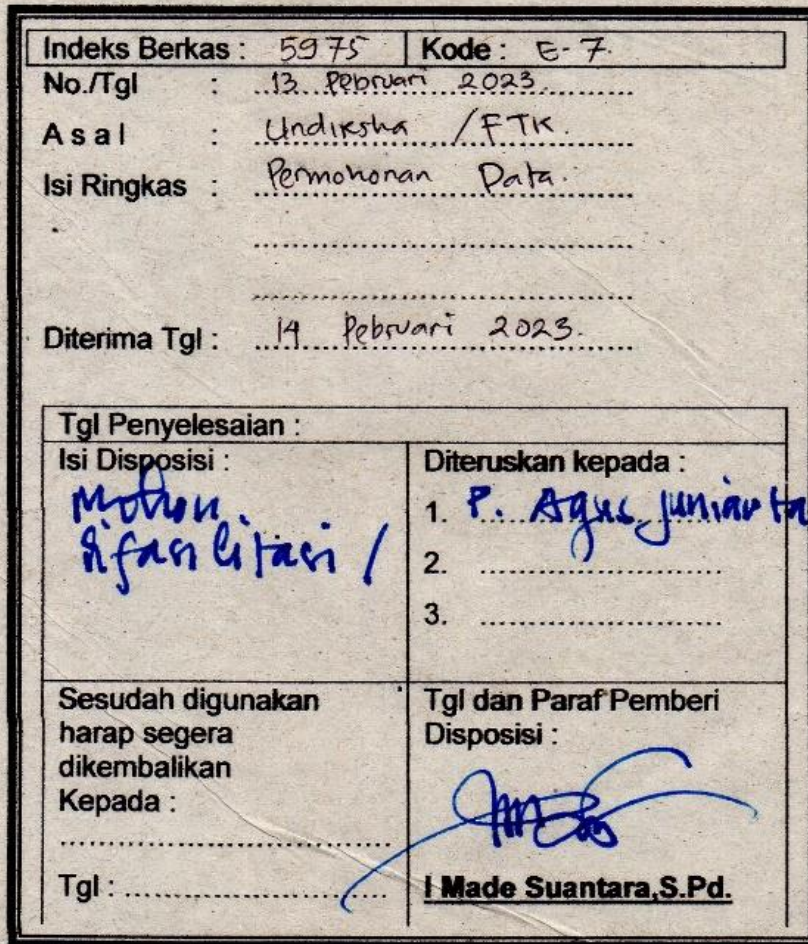 Indeks Berkas : 5975 Kode : E-7.
No./Tgl : 13 Pebruari 2023
Asal : Undiksha / FTK.
Isi Ringkas : Permohonan Data.
Diterima Tgl : 14 Pebruari 2023.
Tgl Penyelesaian :
Isi Disposisi :
Mohon
difasilitasi /
Diteruskan kepada :
1. P. Agus Juniarta
2.
3.
Sesudah digunakan
harap segera
dikembalikan
Kepada :
Tgl :
Tgl dan Paraf Pemberi
Disposisi :
I Made Suantara,S.Pd.